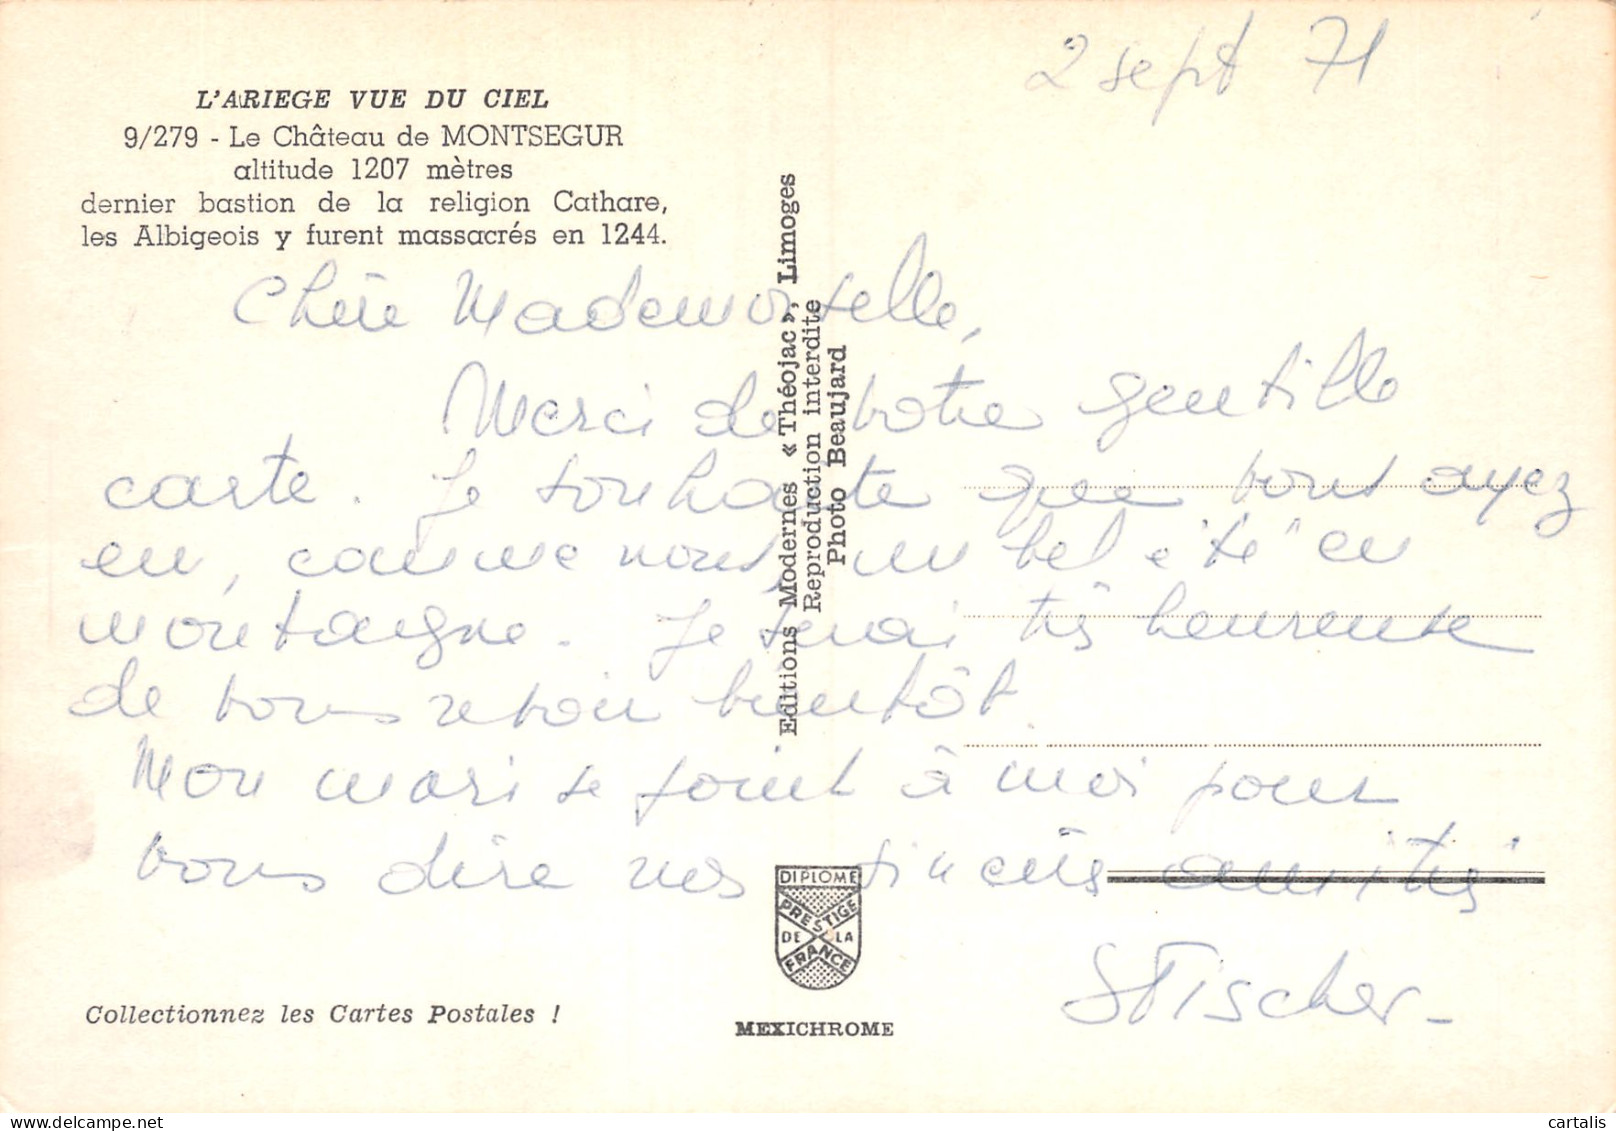 2 sept 71
L'ARIEGE VUE DU CIEL
9/279 - Le Château de MONTSEGUR
altitude 1207 mètres
dernier bastion de la religion Cathare,
les Albigeois y furent massacrés en 1244.
Chère Mademoiselle,
Merci de votre gentille
carte. Je souhaite que vous ayez
eu, comme nous, un bel été en
montagne. Je serai très heureuse
de vous revoir bientôt.
Mon mari se joint à moi pour
vous dire nos sincères amitiés
SFischer-
Editions Modernes « Théojac », Limoges
Reproduction interdite
Photo Beaujard
DIPLOME
PRESTIGE
DE LA
FRANCE
MEXICHROME
Collectionnez les Cartes Postales !
cartalis